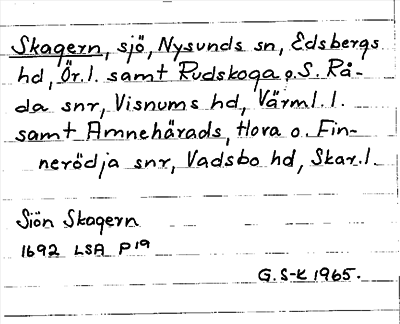 Skagern, sjö, Nysunds sn, Edsbergs
hd, Ör.l. samt Rudskoga o. S. Rå-
da snr, Visnums hd, Värml. l.
samt Amnehärads, Hova o. Fin-
nerödja snr, Vadsbo hd, Skar.l.
Siön Skagern
1692 LSA P19
G. S-K 1965.